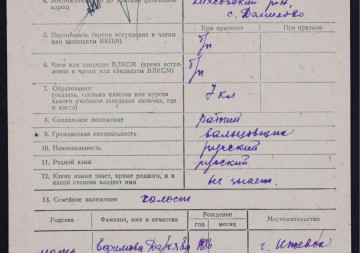 адрес)
с. Далигово
5. Партийность (время вступления в члены
или кандидаты ВКП(б)
При приписке
При призыве
б/п
6. Член или кандидат ВЛКСМ (время вступ-
ления в члены или кандидаты ВЛКСМ)
б/п
7. Образование:
(указать, сколько классов или курсов
какого учебного заведения окончил, где
и когда)
7 кл
8. Социальное положение
рабочий
9. Гражданская специальность
вальцовщик
10. Национальность
русский
11. Родной язык
русский
12. Какие языки знает, кроме родного, и в
какой степени владеет ими
не знает.
13. Семейное положение
холост
Родство
Фамилия, имя и отчество
Рождение
год
месяц
Местожительство
мать
г. Ижевск